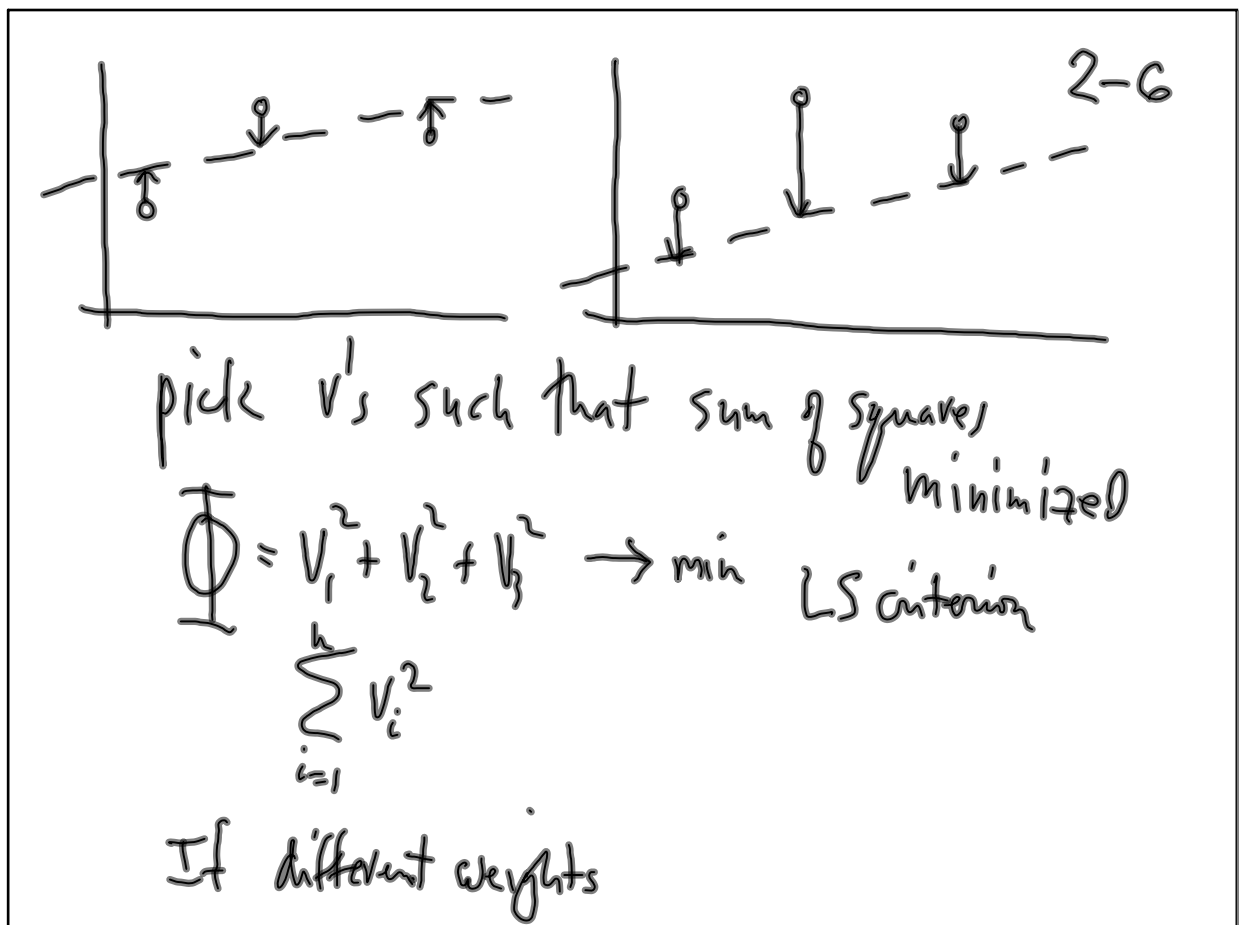 2-6
pick v's such that sum of squares
minimized
Φ = V₁² + V₂² + V₃² → min LS criterion
n
Σ Vᵢ²
i=1
If different weights